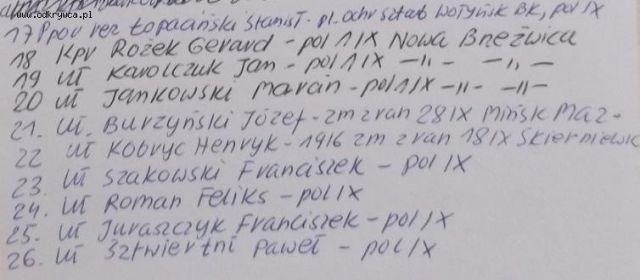 www.odkrywca.pl
17 Ppor rez Łopaciński Stanisł - pl. ochr sztab Wołyńsk BK, pol IX
18 Kpr Rożek Gerard - pol 1 IX Nowa Brzeźnica
19 uł Karolczuk Jan - pol 1 IX -„- -„-
20 uł Jankowski Marcin - pol 1 IX -„- -„-
21. uł. Burzyński Józef - zm z ran 28 IX Mińsk Maz-
22 uł Kobryc Henryk - 1916 zm z ran 18 IX Skierniewk
23. uł Szakowski Franciszek - pol IX
24. uł Roman Feliks - pol IX
25. uł Juraszczyk Franciszek - pol IX
26. uł Sztwiertni Paweł - pol IX